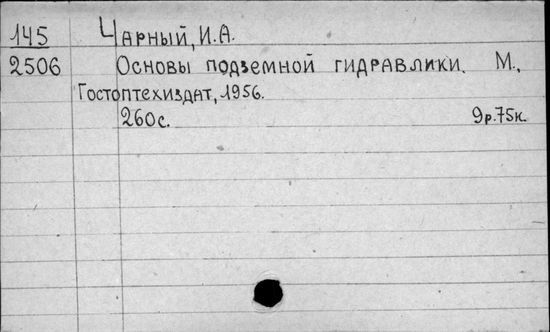 145 Чарный, И.А.
2506 Основы подземной гидравлики. М.,
Гостоптехиздат, 1956.
260с. 9р.75к.